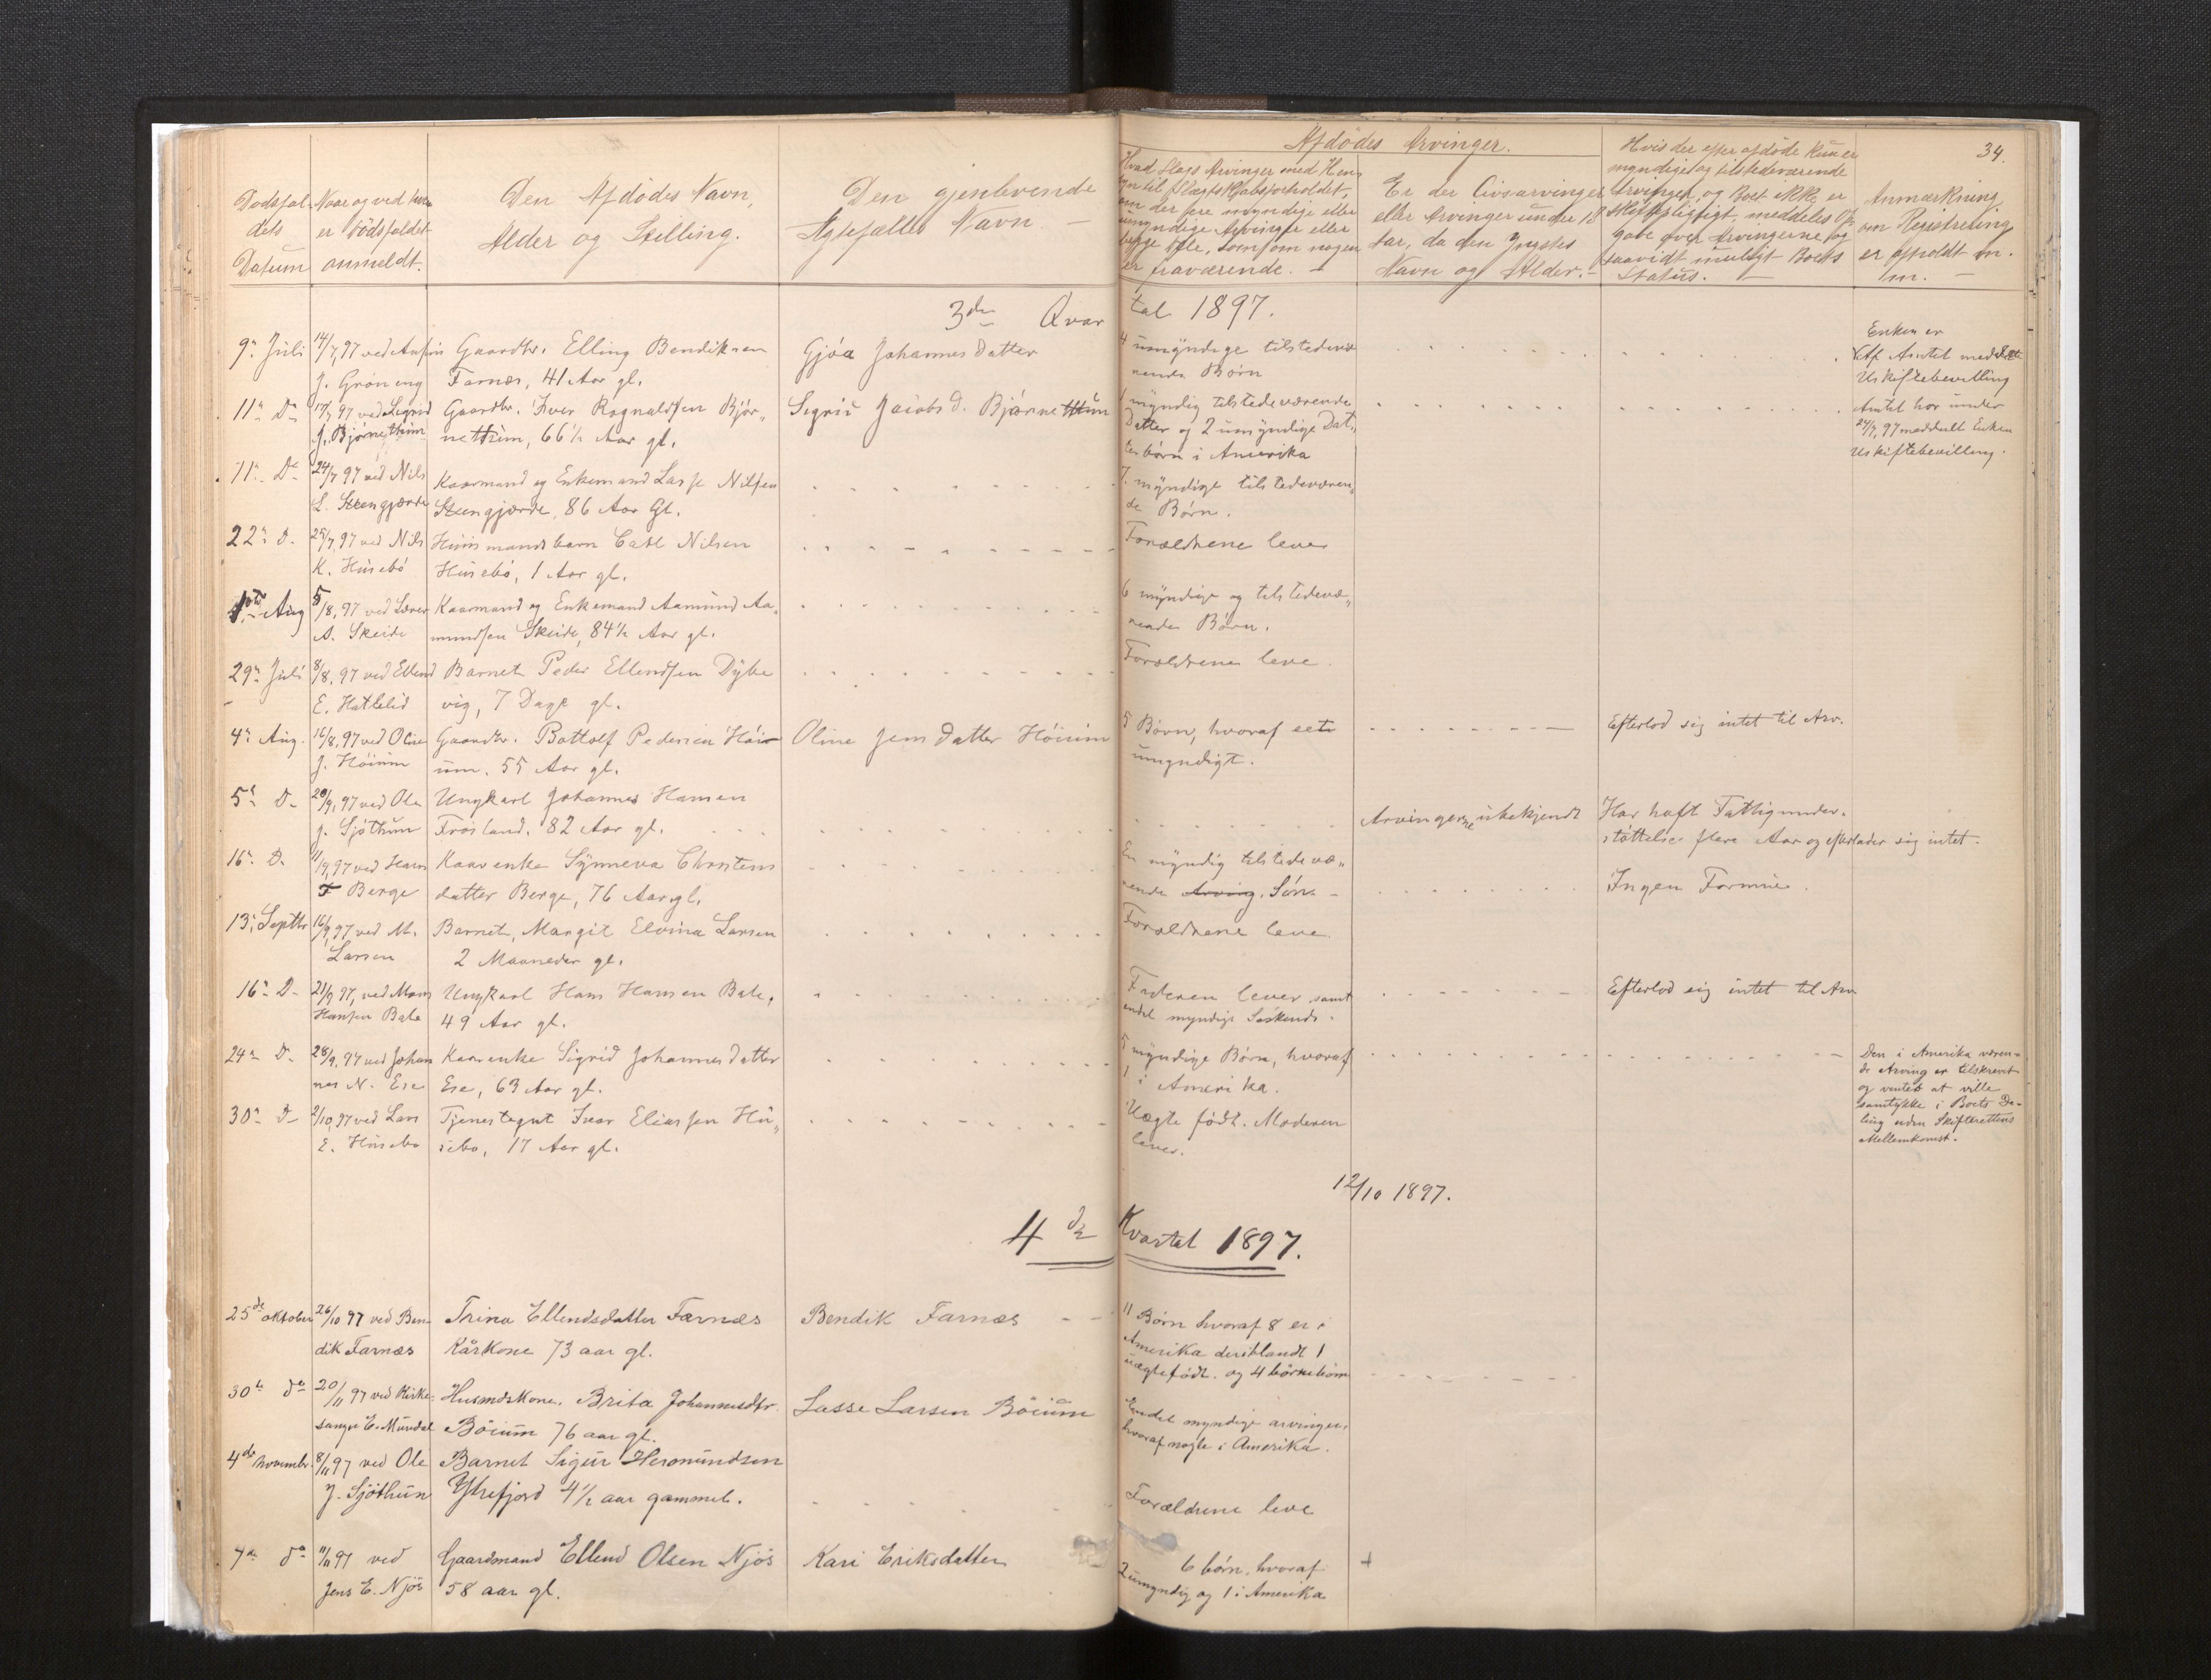 34.
Afdødes Arvinger.
Dødsfal-
dets
Datum
Naar og ved hvem
er Dödsfaldet
anmeldt.
Den Afdödes Navn,
Alder og Stilling.
Den gjenlevende
Ægtefælles Navn. —
Hvad Slags Arvinger med Hen-
syn til Slægtskabsforholdet,
om der ere myndige eller
umyndige Arvinger eller
begge Dele, som om nogen
er fraværende. —
Er der Livsarvinger
eller Arvinger under 18
Aar, da den Yngstes
Navn og Alder. —
Hvis der efter afdöde kun er
myndige og tilstedeværende
Arvinger, og Boet ikke er
skiftepligtigt, meddeles Op-
gave over Arvingerne og
saavidt muligt Boets
Status. —
Anmærkning
om Registrering
er afholdt m.
m. —
3die Qvartal 1897.
9de Juli
14/7 97 ved Anfin
J. Gröneng
Gaardbr. Elling Bendiksen
Farnæs, 41 Aar gl.
Gjöa Johannesdatter
4 umyndige tilstedevæ-
rende Börn
Enken er
af Amtet meddelt
Uskiftebevilling
11te Do
17/7 97 ved Sigrid
J. Bjørnethun
Gaardbr. Iver Rognaldsen Bjør-
nethun, 66½ Aar gl.
Sigrid Jacobsd. Bjørnethun
1 myndig tilstedeværende
Datter og 2 umyndige Dat-
terbörn i Amerika
Amtet har under
27/7 97 meddelt Enken
Uskiftebevilling.
11te Do
24/7 97 ved Nils
L. Steengjærde
Kaarmand og Enkemand Lasse Nilsen
Steengjærde, 86 Aar Gl.
7 myndige tilstedeværen-
de Börn.
22de D.
25/7 97 ved Nils
K. Husebö
Huusmandsbarn Carl Nilsen
Husebö, 1 Aar gl.
Forældrene lever
1ste Aug
5/8, 97 ved
A. Skeide
Kaarmand og Enkemand Aamund Aa-
mundsen Skeide, 84½ Aar gl.
6 myndige og tilstedevæ-
rende Børn.
29de Juli
8/8, 97 ved Ellend
E. Hatlelid
Barnet Peder Ellendsen Dybe
vig, 7 Dage gl.
Forældrene leve.
4de Aug.
16/8, 97 ved Oline
J. Höium
Gaardbr. Bottolf Pedersen Höi-
um. 55 Aar gl.
Oline Jensdatter Höium
5 Börn, hvoraf eet
umyndigt.
Efterlod sig intet til Arv.
5te D.
20/9, 97 ved Ole
J. Sjöthun
Ungkarl Johannes Hansen
Frösland. 82 Aar gl.
Arvingerne ubekjendt
Har haft Fattigunder-
stöttelse flere Aar og efterlader sig intet.
16de D.
11/9, 97 ved Hans
T Berge
Kaarenke Synneva Thorstens
datter Berge, 76 Aar gl.
En myndig tilstedevæ-
rende Arving. Sön. —
Ingen Formue.
13de Septbr
16/9, 97 ved M.
Larsen
Barnet, Margit Elvina Larsen
2 Maaneder gl.
Forældrene leve.
16de D.
21/9 97, ved Mons
Hansen Bale
Ungkarl Hans Hansen Bale,
49 Aar gl.
Faderen lever, samt
endel myndige Söskende.
Efterlod sig intet til Arv
24de D.
28/9, 97 ved Johan
nes N. Ese
Kaarenke Sigrid Johannesdatter
Ese, 63 Aar gl.
5 myndige Børn, hvoraf
1 i Amerika.
Den i Amerika væren-
de Arving er tilskrevet
og ventes at ville
samtykke i Boets De-
ling uden Skifterettens
Mellemkomst.
30te D
2/10, 97 ved Lars
E. Husebo
Tjenestegut Ivar Eliassen Hu-
sebo, 17 Aar gl.
Uægte født. Moderen
lever.
12/10 1897.
4de Kvartal 1897.
25de oktober
26/10 97 ved Ben-
dik Farnæs
Trina Ellendsdatter Farnæs
Kårkone 73 aar gl.
Bendik Farnæs
11 Børn hvoraf 8 er i
Amerika deriblandt 1
uægtefødt. og 4 børnebørn
30te do
20/11 97 ved Kirke-
sanger E. Mundal
Husmdskone. Brita Johannesdtr.
Böium 76 aar gl.
Lasse Larsen Böium
Endel myndige arvinger,
hvoraf nogle i Amerika.
4de novembr.
8/11 97 ved Ole
J. Sjöthun
Barnet Sigur Hermundsen
Ytrefjord 4½ aar gammel.
Forældrene leve
7de do
11/11 97 ved
Jens E. Njös
Gaardmand Ellend Olsen Njös
58 aar gl.
Kari Eriksdatter
6 børn, hvoraf
2 umyndig og 1 i Amerika
+